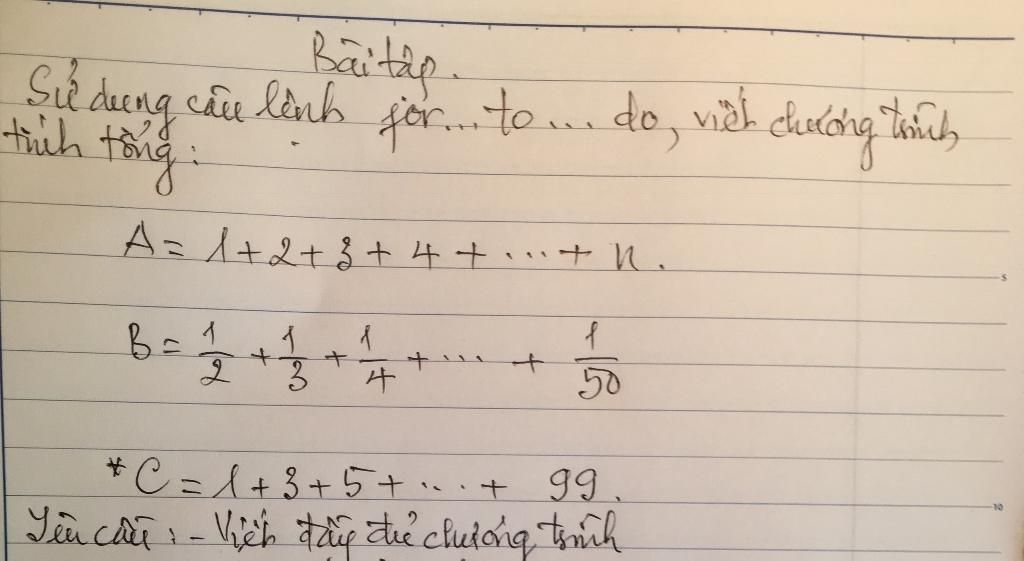 Bài tập.
Sử dụng câu lệnh for... to... do, viết chương trình
tính tổng:
A = 1 + 2 + 3 + 4 + ... + n.
B = 1/2 + 1/3 + 1/4 + ... + 1/50
* C = 1 + 3 + 5 + ... + 99.
Yêu cầu: - Viết đầy đủ chương trình